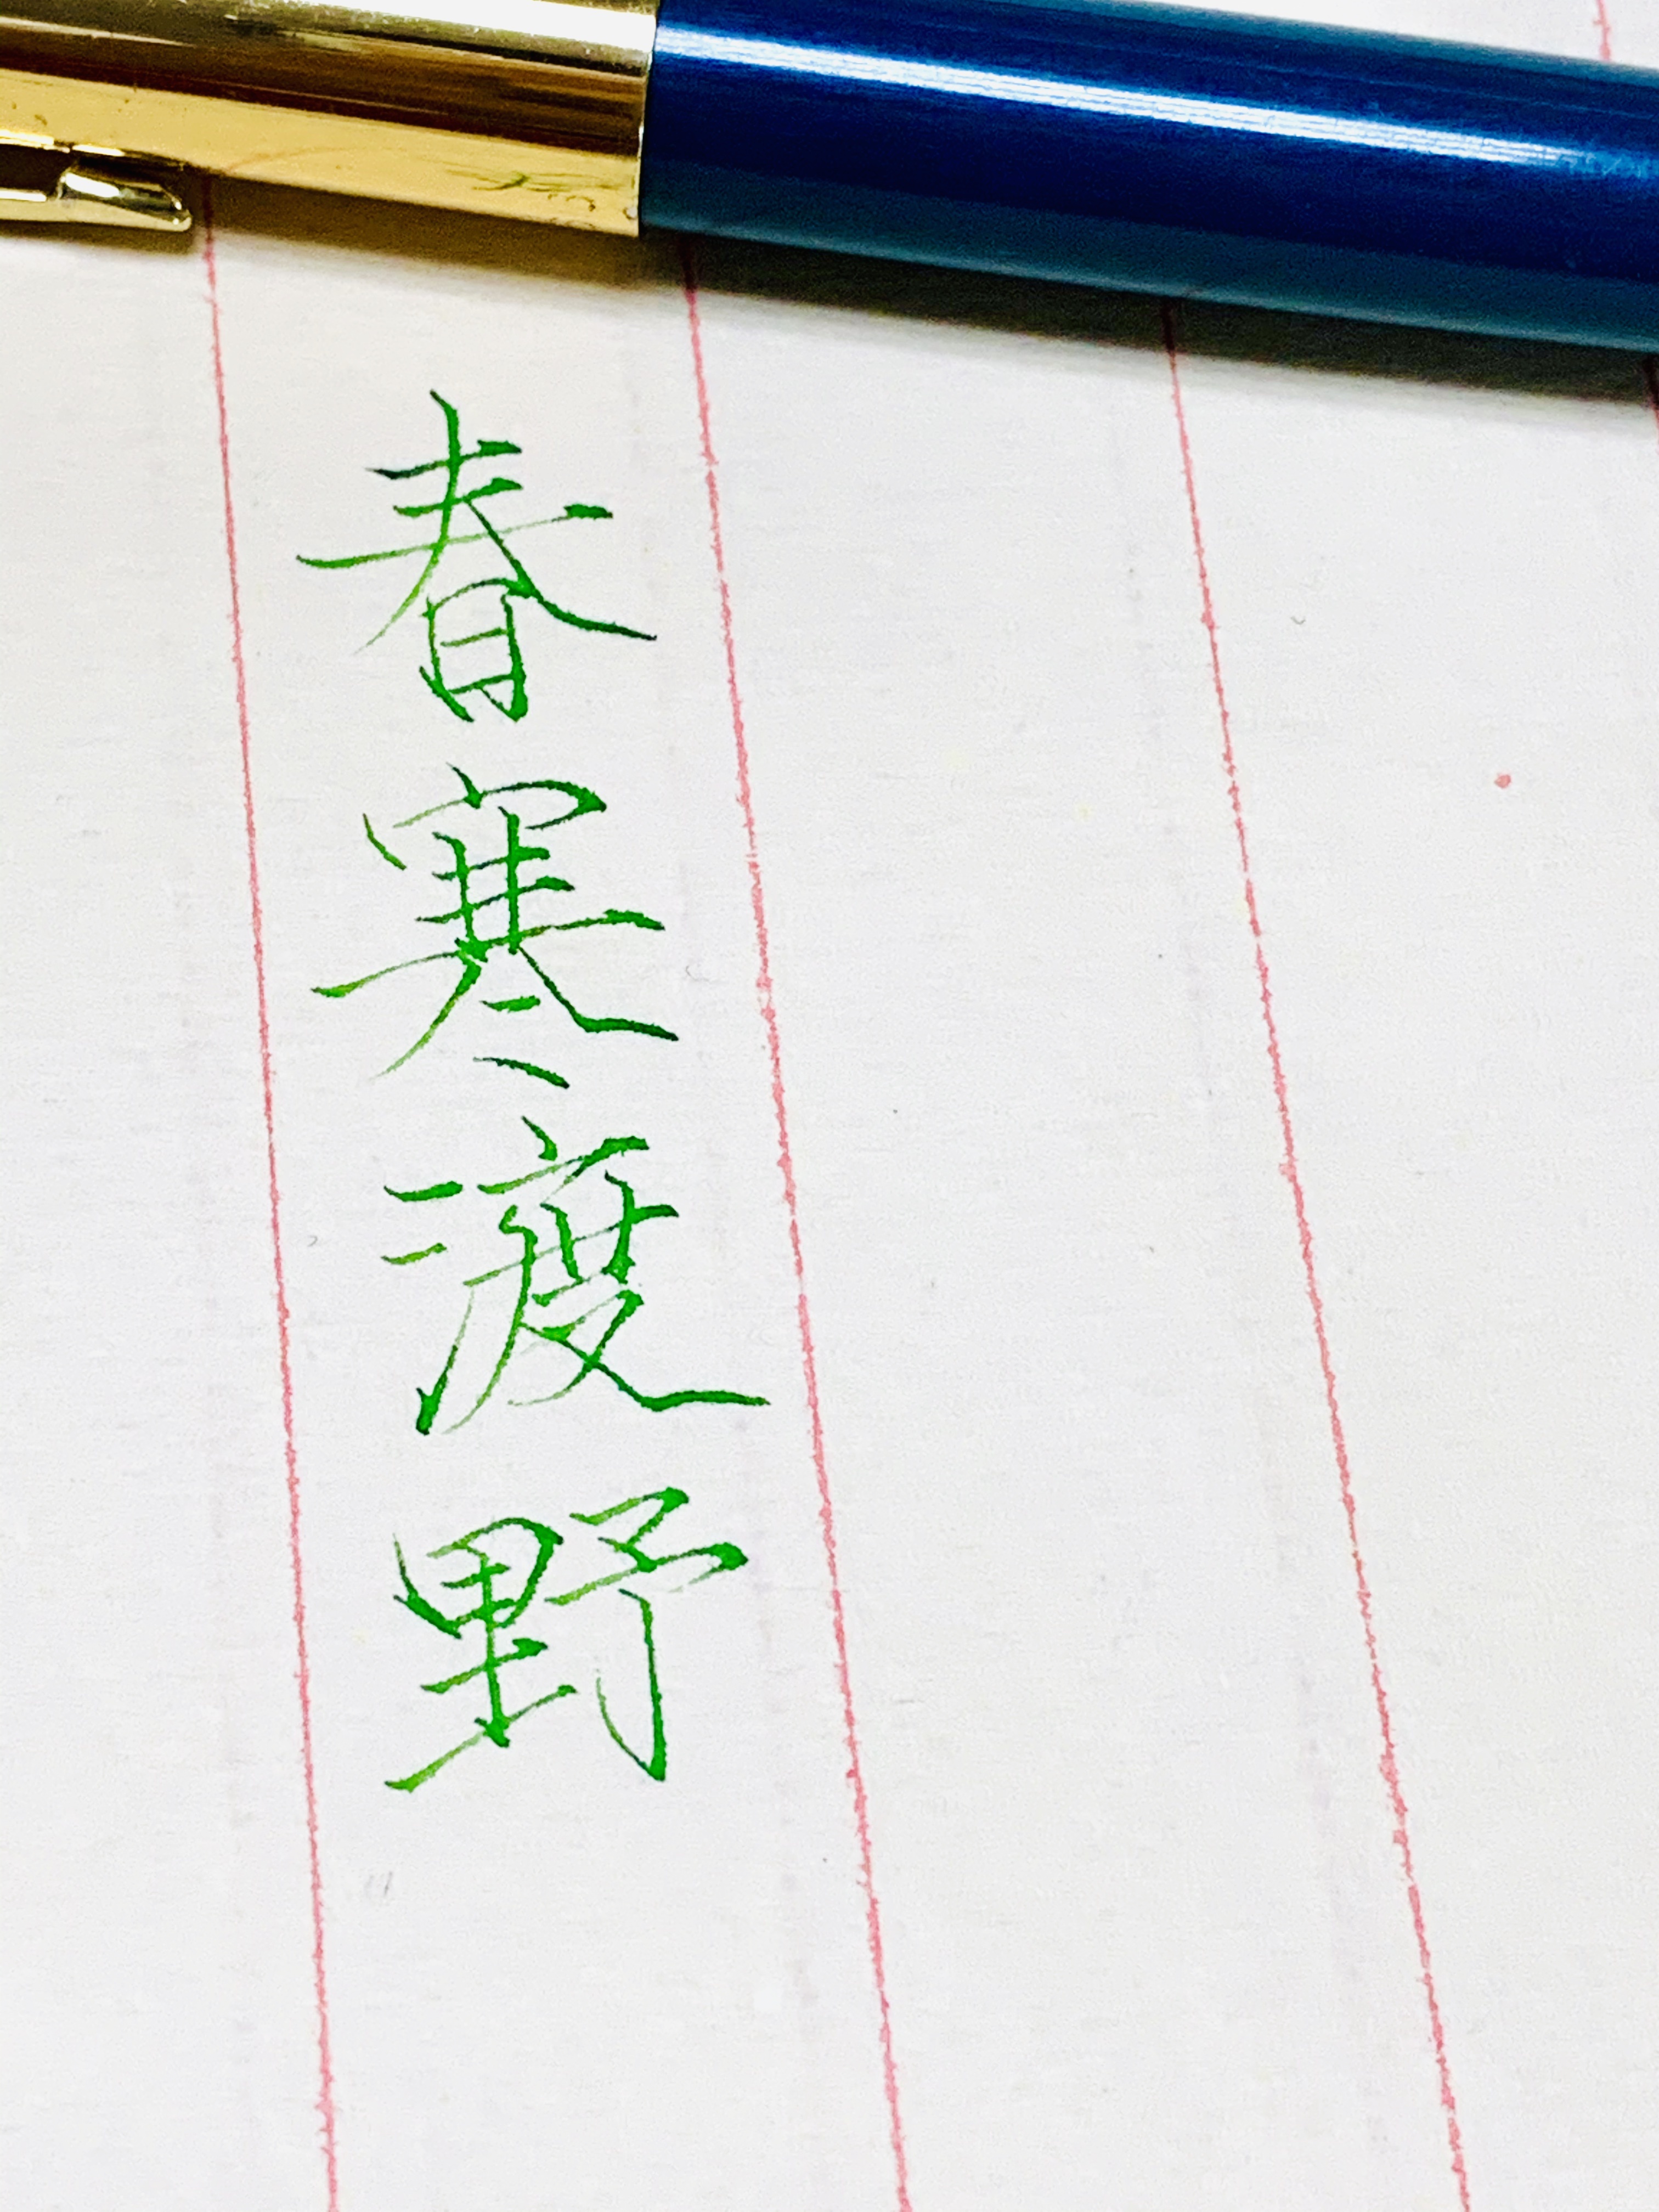 春寒渡野